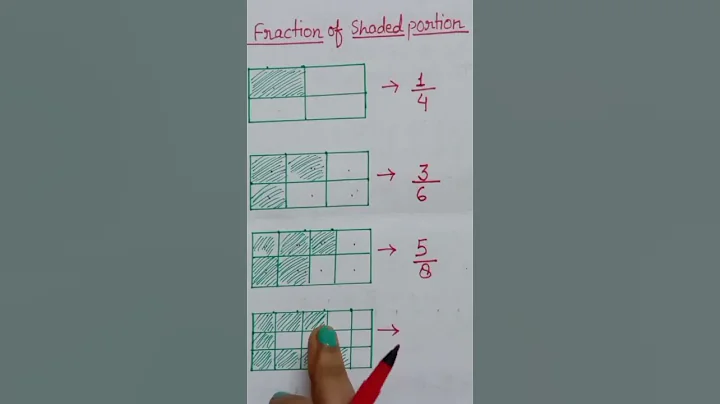 Fraction of Shaded portion
→ 1/4
→ 3/6
→ 5/8
→